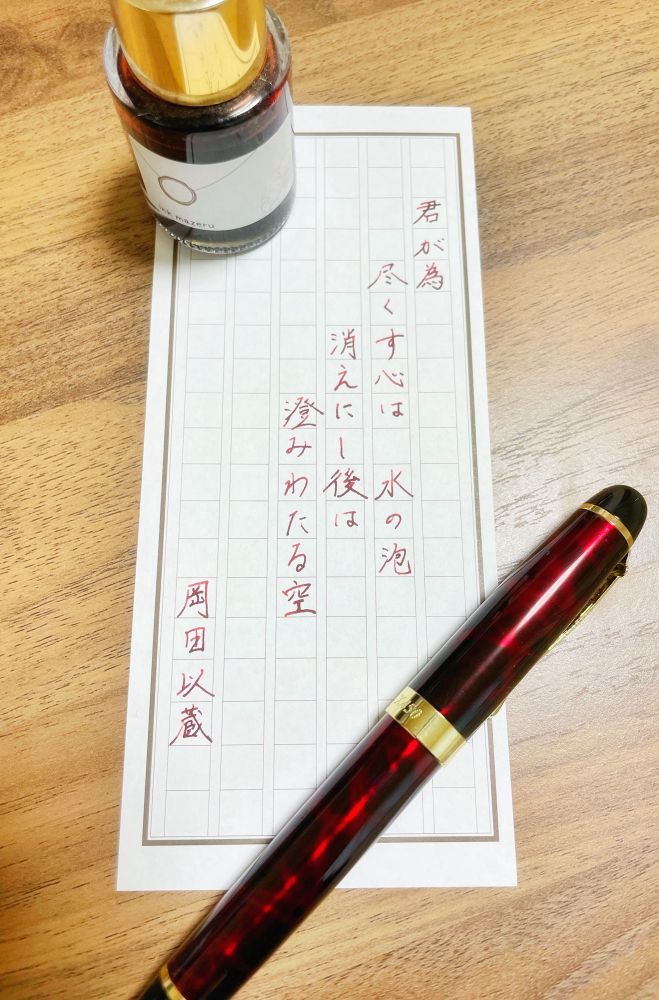 君が為
尽くす心は 水の泡
消えにし後は
澄みわたる空
岡田以蔵
ink mazeru